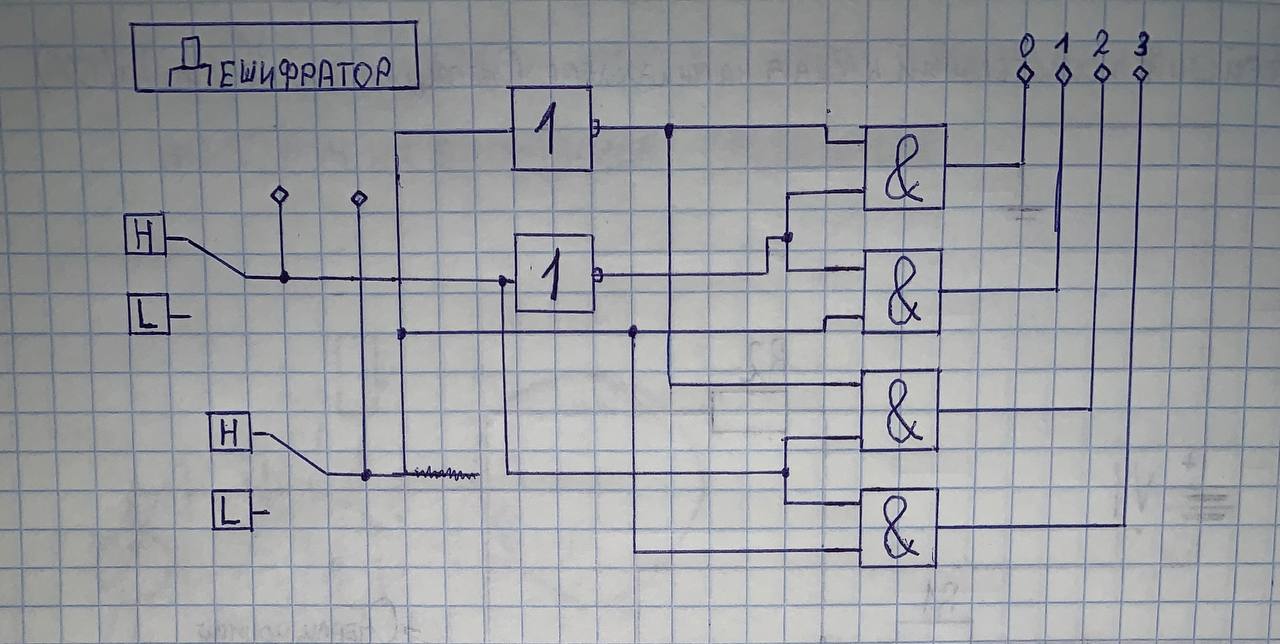 ДЕШИФРАТОР
0 1 2 3
1
&
H
1
L
&
&
H
L
&